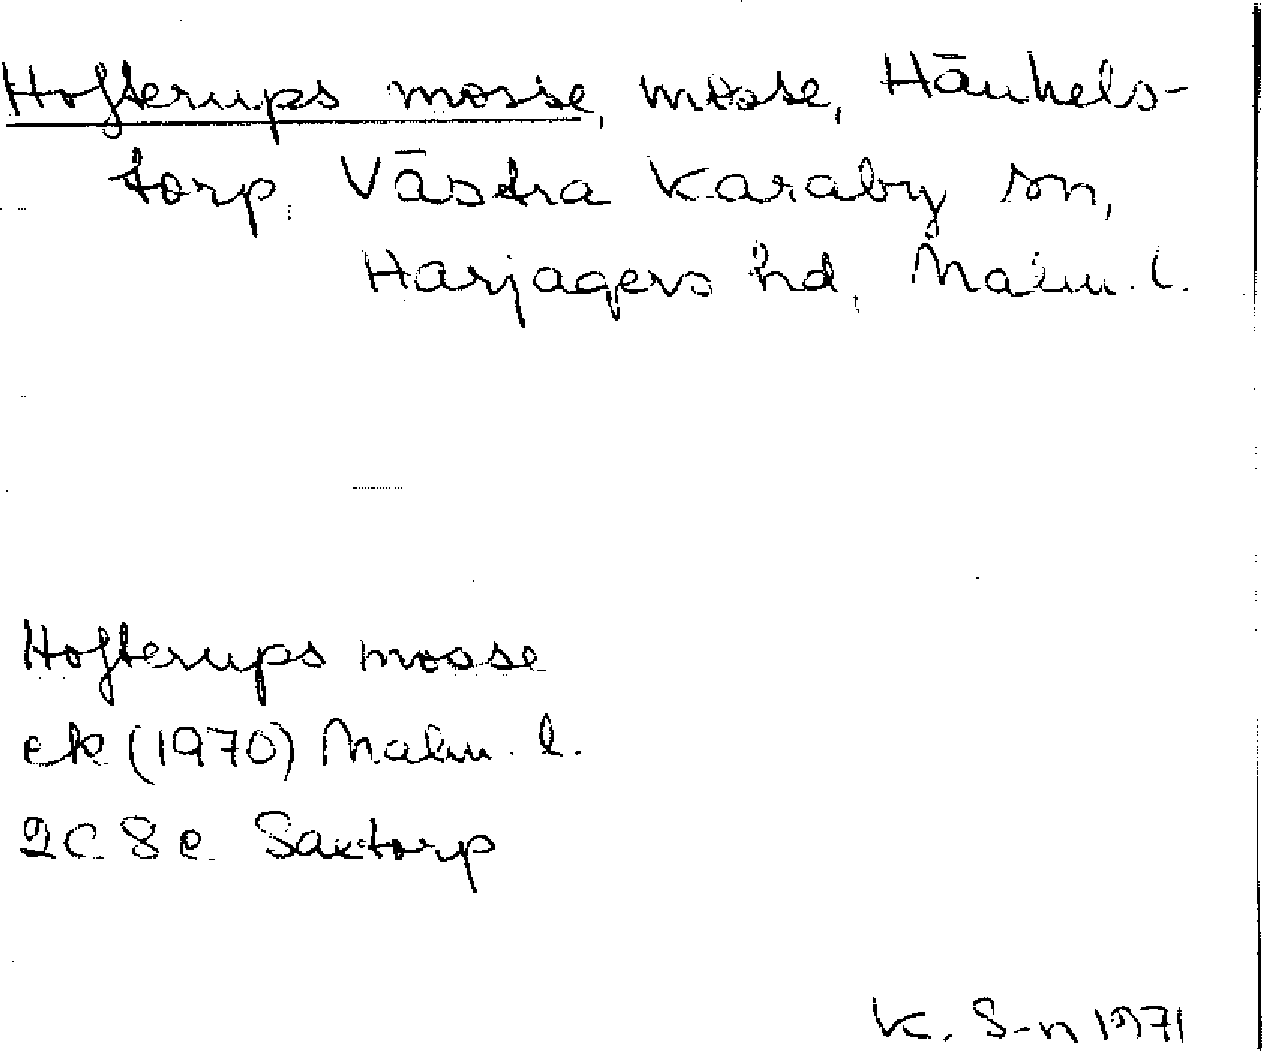 Hofterups mosse, mosse, Hänkels-
torp, Västra Karaby sn,
Harjagers hd, Malm. l.
Hofterups mosse
ek (1970) Malm. l.
2C 8e Saxtorp
K. S-n 1971